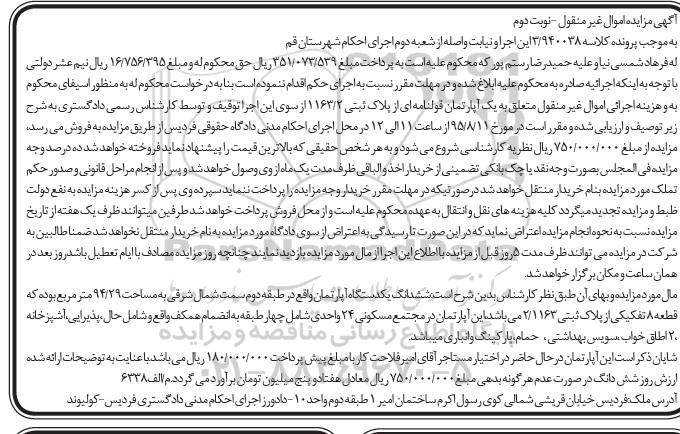 آگهی مزایده اموال غیر منقول -نوبت دوم
به موجب پرونده کلاسه ۳/۹۴۰۰۳۸ این اجرا و نیابت واصله از شعبه دوم اجرای احکام شهرستان قم
له فرهاد شمسی نیا و علیه حمیدرضا رستم پور که محکوم علیه است به پرداخت مبلغ ۳۵۱/۰۷۳/۵۳۹ ریال حق محکوم له و مبلغ ۱۶/۷۵۶/۳۹۵ ریال نیم عشر دولتی
با توجه به اینکه اجرائیه صادره به محکوم علیه ابلاغ شده و در مهلت مقرر نسبت به اجرای حکم اقدام ننموده است بنا به درخواست محکوم له به منظور اسیفای محکوم
به و هزینه اجرائی اموال غیر منقول متعلق به یک آپارتمان قولنامه ای از پلاک ثبتی ۱۱۶۳/۲ از سوی این اجرا توقیف و توسط کارشناس رسمی دادگستری به شرح
زیر توصیف و ارزیابی شده و مقرر است در مورخ ۹۵/۸/۱۱ از ساعت ۱۱ الی ۱۲ در محل اجرای احکام مدنی دادگاه حقوقی فردیس از طریق مزایده به فروش می رسد،
مزایده از مبلغ ۷۵۰/۰۰۰/۰۰۰ ریال نظریه کارشناسی شروع می شود و به هر شخص حقیقی که بالاترین قیمت را پیشنهاد نماید فروخته خواهد شد ده درصد وجه
مزایده فی المجلس بصورت وجه نقد یا چک بانکی تضمینی از خریدار اخذ و الباقی ظرف مدت یک ماه از وی وصول خواهد شد و پس از انجام مراحل قانونی و صدور حکم
تملک مورد مزایده بنام خریدار منتقل خواهد شد در صورتیکه در مهلت مقرر خریدار وجه مزایده را پرداخت ننماید سپرده وی پس از کسر هزینه مزایده به نفع دولت
ظبط و مزایده تجدید میگردد کلیه هزینه های نقل و انتقال به عهده محکوم علیه است و از محل فروش پرداخت خواهد شد طرفین میتوانند ظرف یک هفته از تاریخ
مزایده نسبت به نحوه انجام مزایده اعتراض نماید که در این صورت تا رسیدگی به اعتراض از سوی دادگاه مورد مزایده به نام خریدار منتقل نخواهد شد ضمنا طالبین به
شرکت در مزایده می توانند ظرف مدت ۵ روز قبل از مزایده با اطلاع این اجرا از مال مورد مزایده بازدید نمایند چنانچه روز مزایده مصادف با ایام تعطیل باشد روز بعد در
همان ساعت و مکان برگزار خواهد شد.
مال مورد مزایده و بهای آن طبق نظر کارشناس بدین شرح است: ششدانگ یکدستگاه آپارتمان واقع در طبقه دوم سمت شمال شرقی به مساحت ۹۴/۲۹ متر مربع بوده که
قطعه ۸ تفکیکی از پلاک ثبتی ۲/۱۱۶۳ می باشد این آپارتمان در مجتمع مسکونی ۲۴ واحدی شامل چهار طبقه به انضمام همکف واقع و شامل حال، پذیرایی، آشپزخانه
،۲اطاق خواب،سویس بهداشتی، حمام،پارکینگ و انباری میباشد.
شایان ذکر است این آپارتمان در حال حاضر در اختیار مستاجر آقای امیر فلاحت کار با مبلغ پیش پرداخت ۱۸۰/۰۰۰/۰۰۰ ریال می باشد با عنایت به توضیحات ارائه شده
ارزش روز شش دانگ در صورت عدم هر گونه بدهی مبلغ ۷۵۰/۰۰۰/۰۰۰ ریال معادل هفتاد و پنج میلیون تومان برآورد می گردد.م/الف۶۳۳۸
آدرس ملک:فردیس خیابان قریشی شمالی کوی رسول اکرم ساختمان امیر ۱ طبقه دوم واحد۱۰-دادورز اجرای احکام مدنی دادگستری فردیس-کولیوند
ParsNamadData
پایگاه اطلاع رسانی مناقصه و مزایده
۰۲۱-۸۸۳۴۹۶۷۰-۵